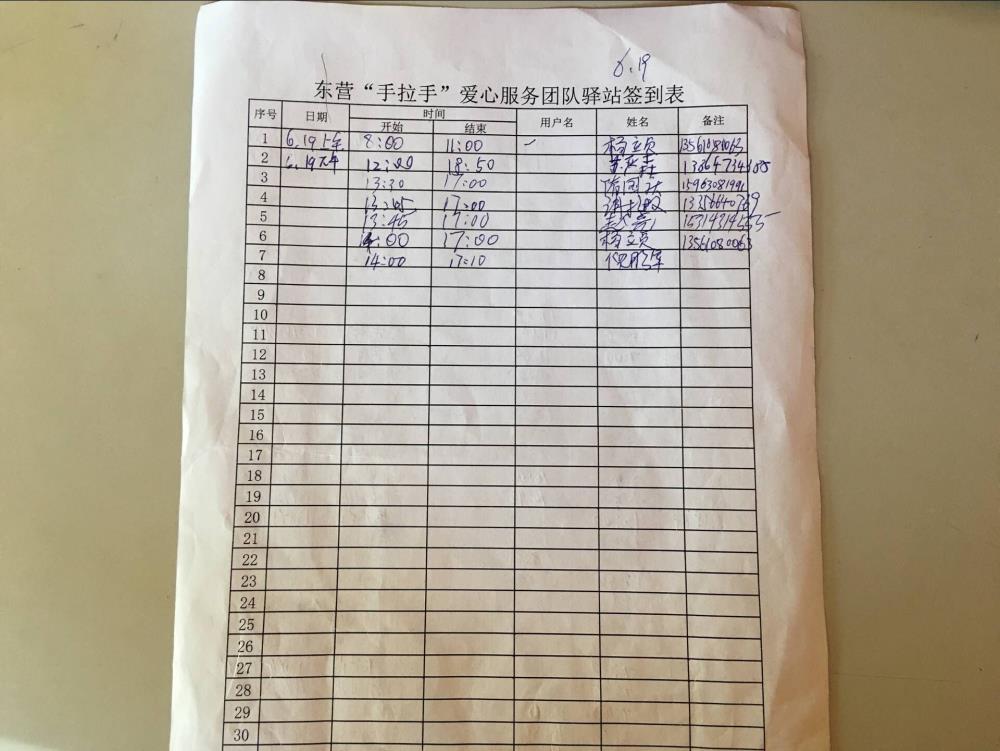 6.19
东营“手拉手”爱心服务团队驿站签到表
序号 日期 时间 用户名 姓名 备注
开始 结束
1 6.19上午 8:00 11:00 杨立贞
2 6.19下午 12:00 18:50
3 13:30 17:00 15963081991
4 17:00
5 13:45 17:00
6 14:00 17:00 杨立贞 13561080063
7 14:00 17:10
8
9
10
11
12
13
14
15
16
17
18
19
20
21
22
23
24
25
26
27
28
29
30